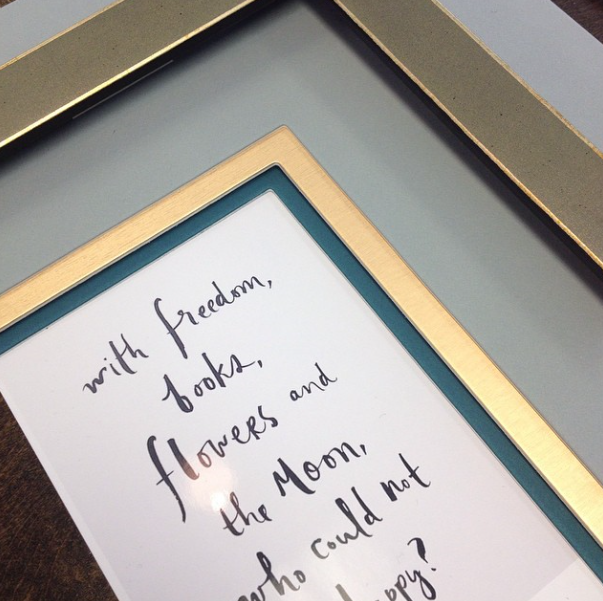 with freedom,
books,
flowers and
the Moon,
who could not
happy?